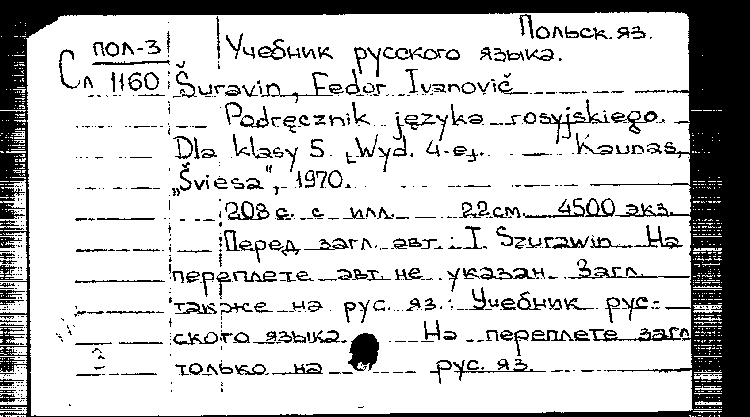 Польск. яз.
ПОЛ-3
Учебник русского языка.
Сл 1160
Šuravin, Fedor Ivanovič
Podręcznik języka rosyjskiego.
Dla klasy 5. [Wyd. 4-e]. Kaunas,
„Šviesa", 1970.
208 с. с илл. 22 см. 4500 экз.
Перед загл. авт.: I. Szurawin. На
переплете авт. не указан. Загл.
также на рус. яз.: Учебник рус-
ского языка. На переплете загл.
только на рус. яз.